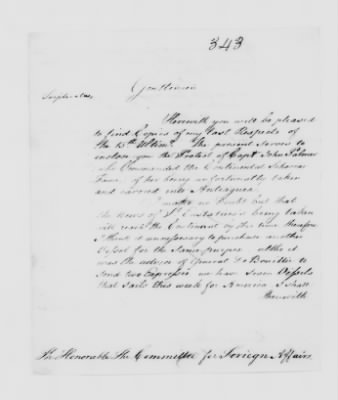 343
Gentlemen
Herewith you will be pleased
to find Copies of my last Respects of
the 15th Ultimo. The present serves to
inclose you the Protest of Capt. John Palmer
who Commanded the Continental Schooner
Fame of his being unfortunately taken
and carried into Antiegua.
I make no Doubt but that
the News of St. Eustatia's being taken
will reach the Continent by this time therefore
I think it unnecessary to purchase another
Vessel for the same purpose altho it
was the advice of General De Bouillie to
send two Expresses we have seven Vessels
that sails this week for America I shall
Herewith
The Honorable The Committee for Foreign Affairs